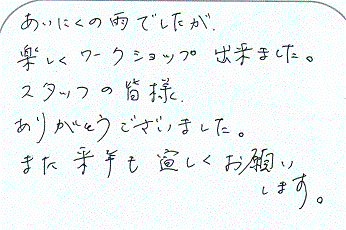 あいにくの雨でしたが、
楽しくワークショップ出来ました。
スタッフの皆様、
ありがとうございました。
また来年も宜しくお願い
します。